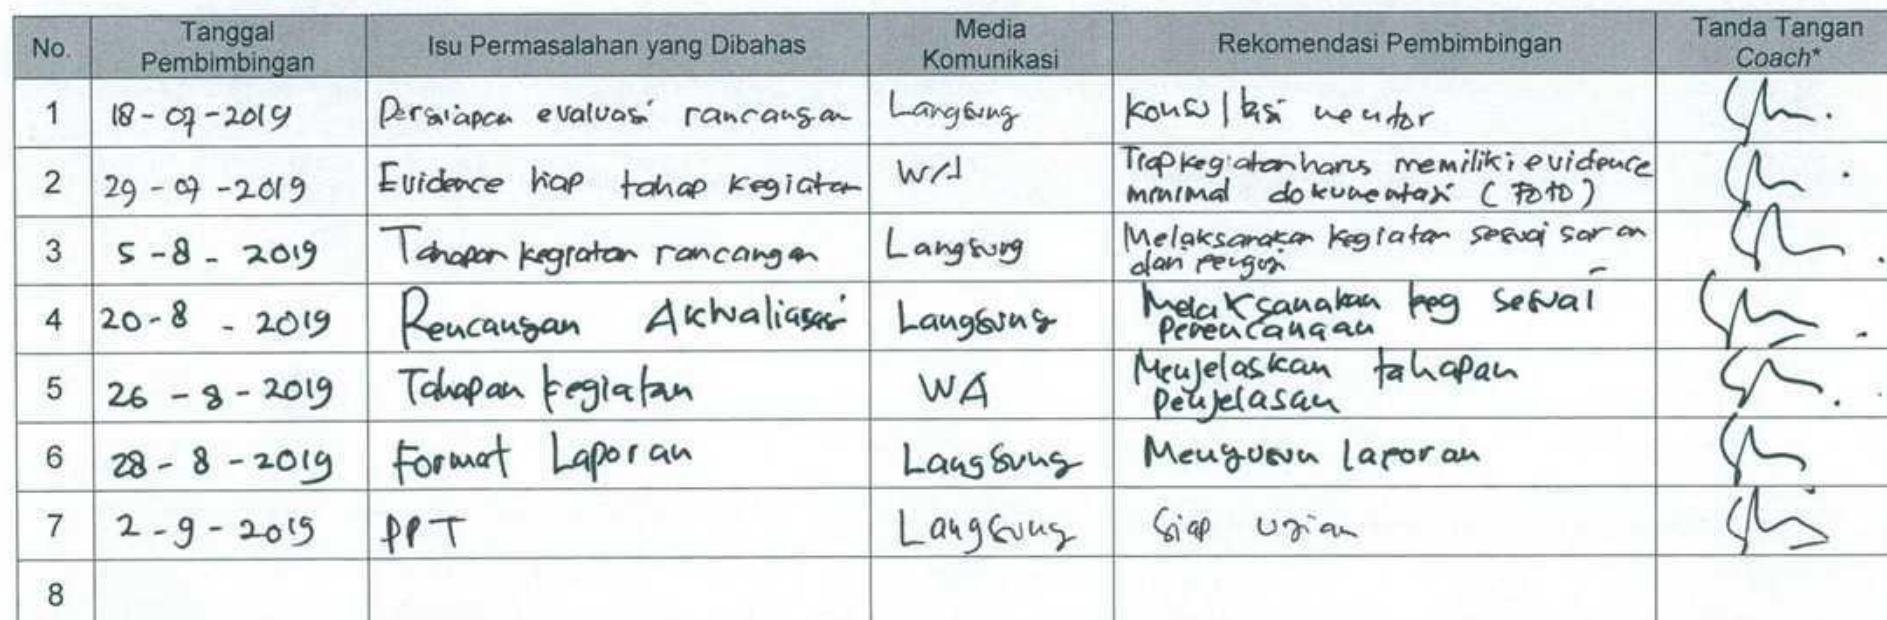 No. Tanggal Pembimbingan Isu Permasalahan yang Dibahas Media Komunikasi Rekomendasi Pembimbingan Tanda Tangan Coach*
1 18-07-2019 Persiapan evaluasi rancangan Langsung Konsultasi mentor
2 29-07-2019 Evidence tiap tahap kegiatan WA Tiap kegiatan harus memiliki evidence
minimal dokumentasi (FOTO)
3 5-8-2019 Tahapan kegiatan rancangan Langsung Melaksanakan kegiatan sesuai saran
dan
4 20-8-2019 Rencangan Aktualisasi Langsung Melaksanakan keg sesuai
perencanaan
5 26-8-2019 Tahapan kegiatan WA Menjelaskan tahapan
penjelasan
6 28-8-2019 Format Laporan Langsung Menyusun laporan
7 2-9-2019 PPT Langsung Siap ujian
8